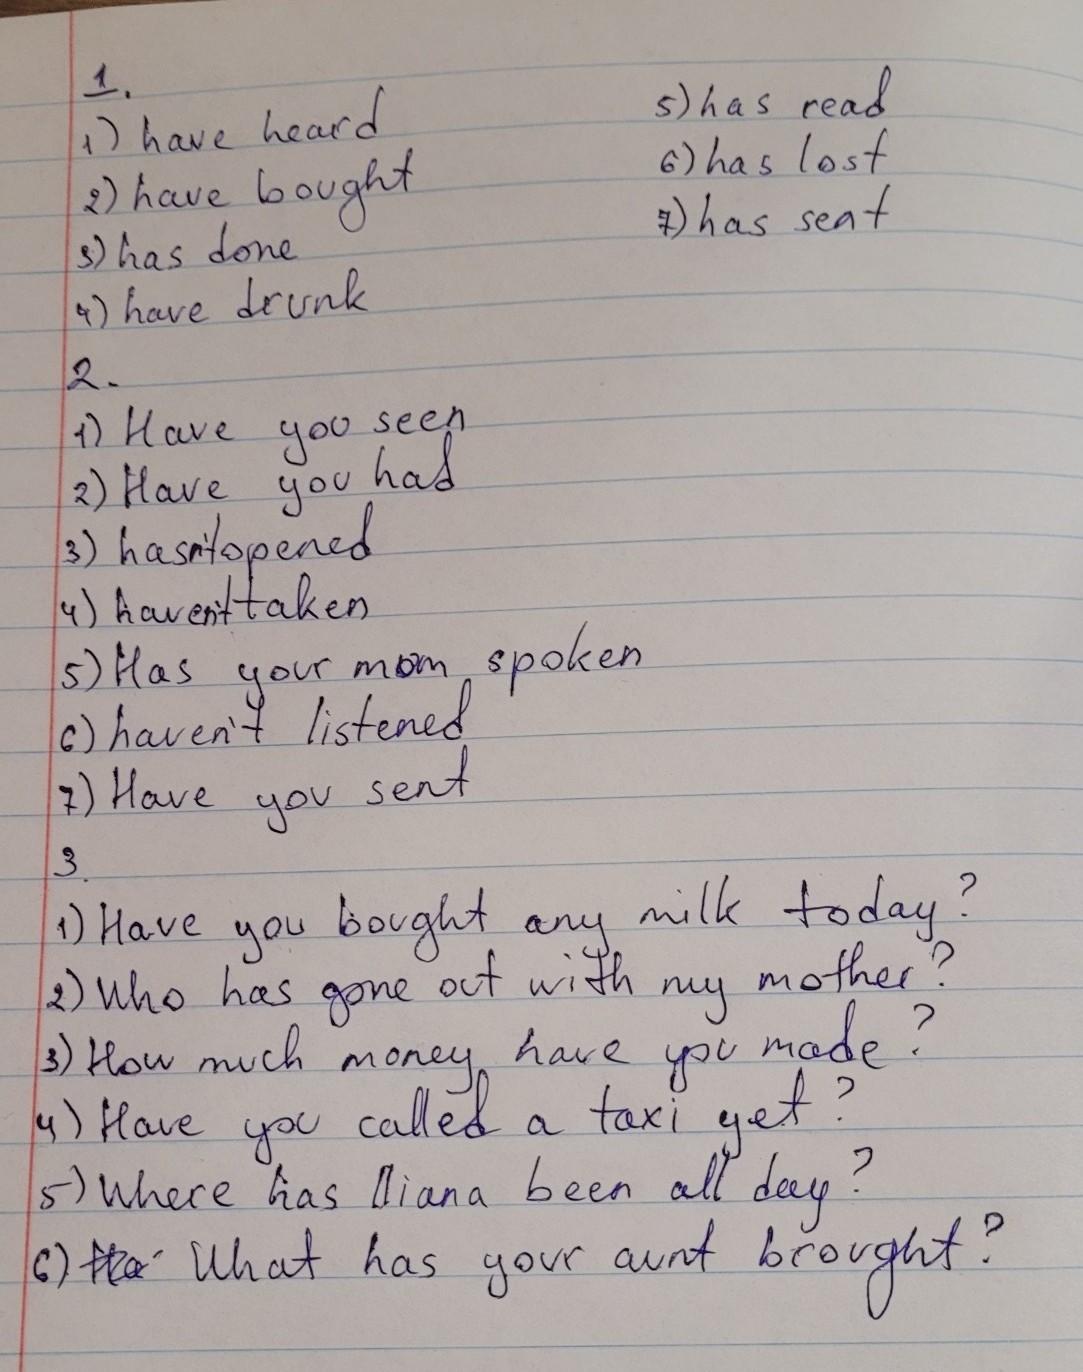 1.
1) have heard
2) have bought
3) has done
4) have drunk
5) has read
6) has lost
7) has sent
2.
1) Have you seen
2) Have you had
3) hasn't opened
4) haven't taken
5) Has your mom spoken
6) haven't listened
7) Have you sent
3.
1) Have you bought any milk today?
2) Who has gone out with my mother?
3) How much money have you made?
4) Have you called a taxi yet?
5) Where has Diana been all day?
6) What has your aunt brought?